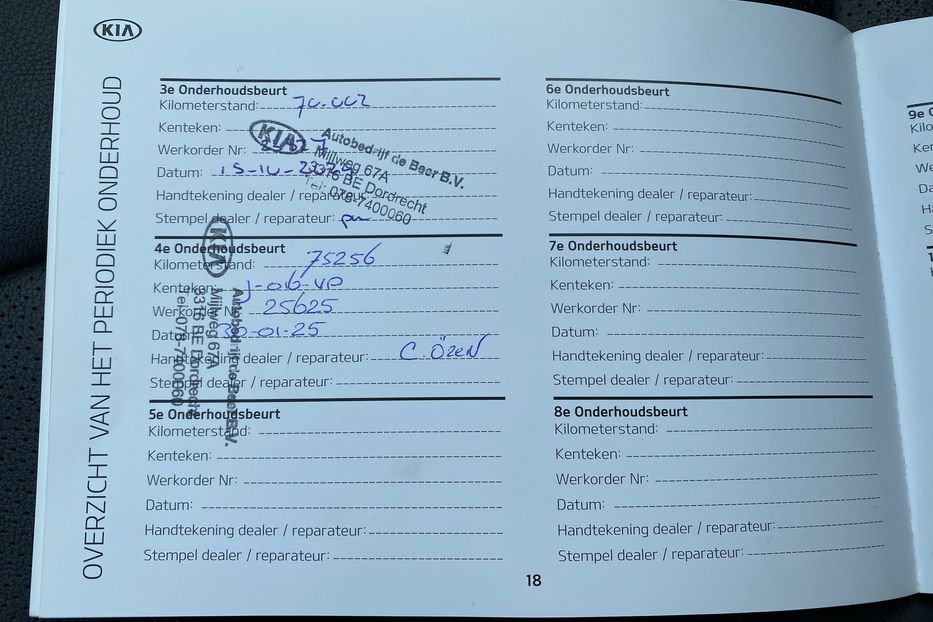 KIA
OVERZICHT VAN HET PERIODIEK ONDERHOUD
3e Onderhoudsbeurt
Kilometerstand:
Kenteken:
Werkorder Nr:
Datum: 15-10-
Handtekening dealer / reparateur:
Stempel dealer / reparateur:
KIA
Autobedrijf de Beer B.V.
Mijlweg 67A
3316 BE Dordrecht
Tel: 078-7400060
4e Onderhoudsbeurt
Kilometerstand: 75256
Kenteken: J-016-VP
Werkorder Nr: 25625
Datum: 30-01-25
Handtekening dealer / reparateur: C. ÖZEN
Stempel dealer / reparateur:
KIA
Autobedrijf de Beer B.V.
Mijlweg 67A
3316 BE Dordrecht
Tel: 078-7400060
5e Onderhoudsbeurt
Kilometerstand:
Kenteken:
Werkorder Nr:
Datum:
Handtekening dealer / reparateur:
Stempel dealer / reparateur:
6e Onderhoudsbeurt
Kilometerstand:
Kenteken:
Werkorder Nr:
Datum:
Handtekening dealer / reparateur:
Stempel dealer / reparateur:
7e Onderhoudsbeurt
Kilometerstand:
Kenteken:
Werkorder Nr:
Datum:
Handtekening dealer / reparateur:
Stempel dealer / reparateur:
8e Onderhoudsbeurt
Kilometerstand:
Kenteken:
Werkorder Nr:
Datum:
Handtekening dealer / reparateur:
Stempel dealer / reparateur:
18
9e